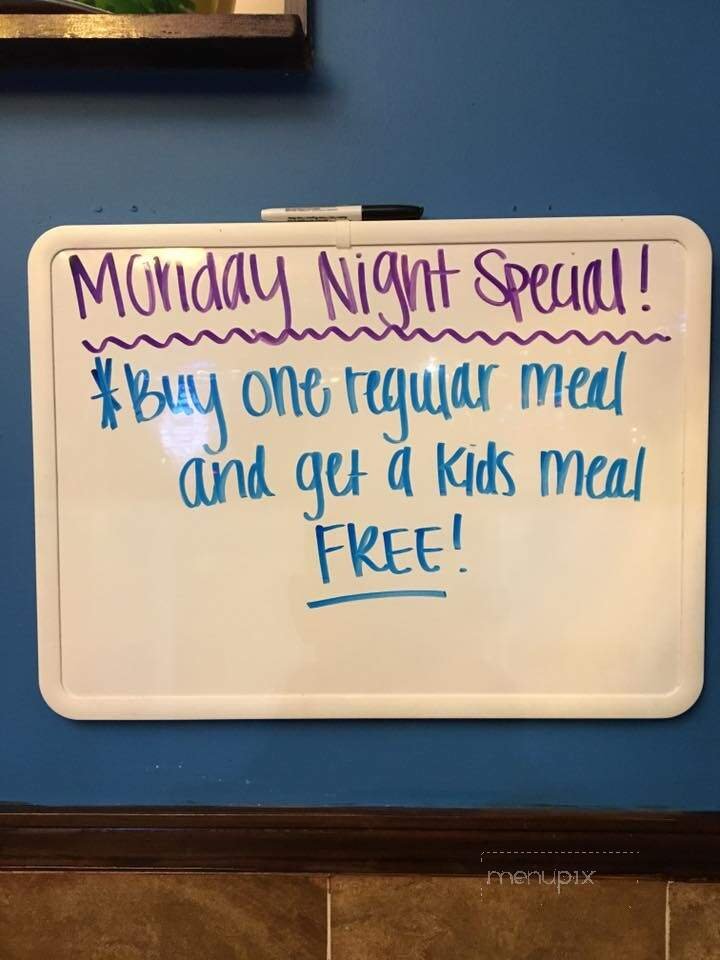 Monday Night Special!
*Buy one regular meal
and get a kids meal
FREE!
menupix